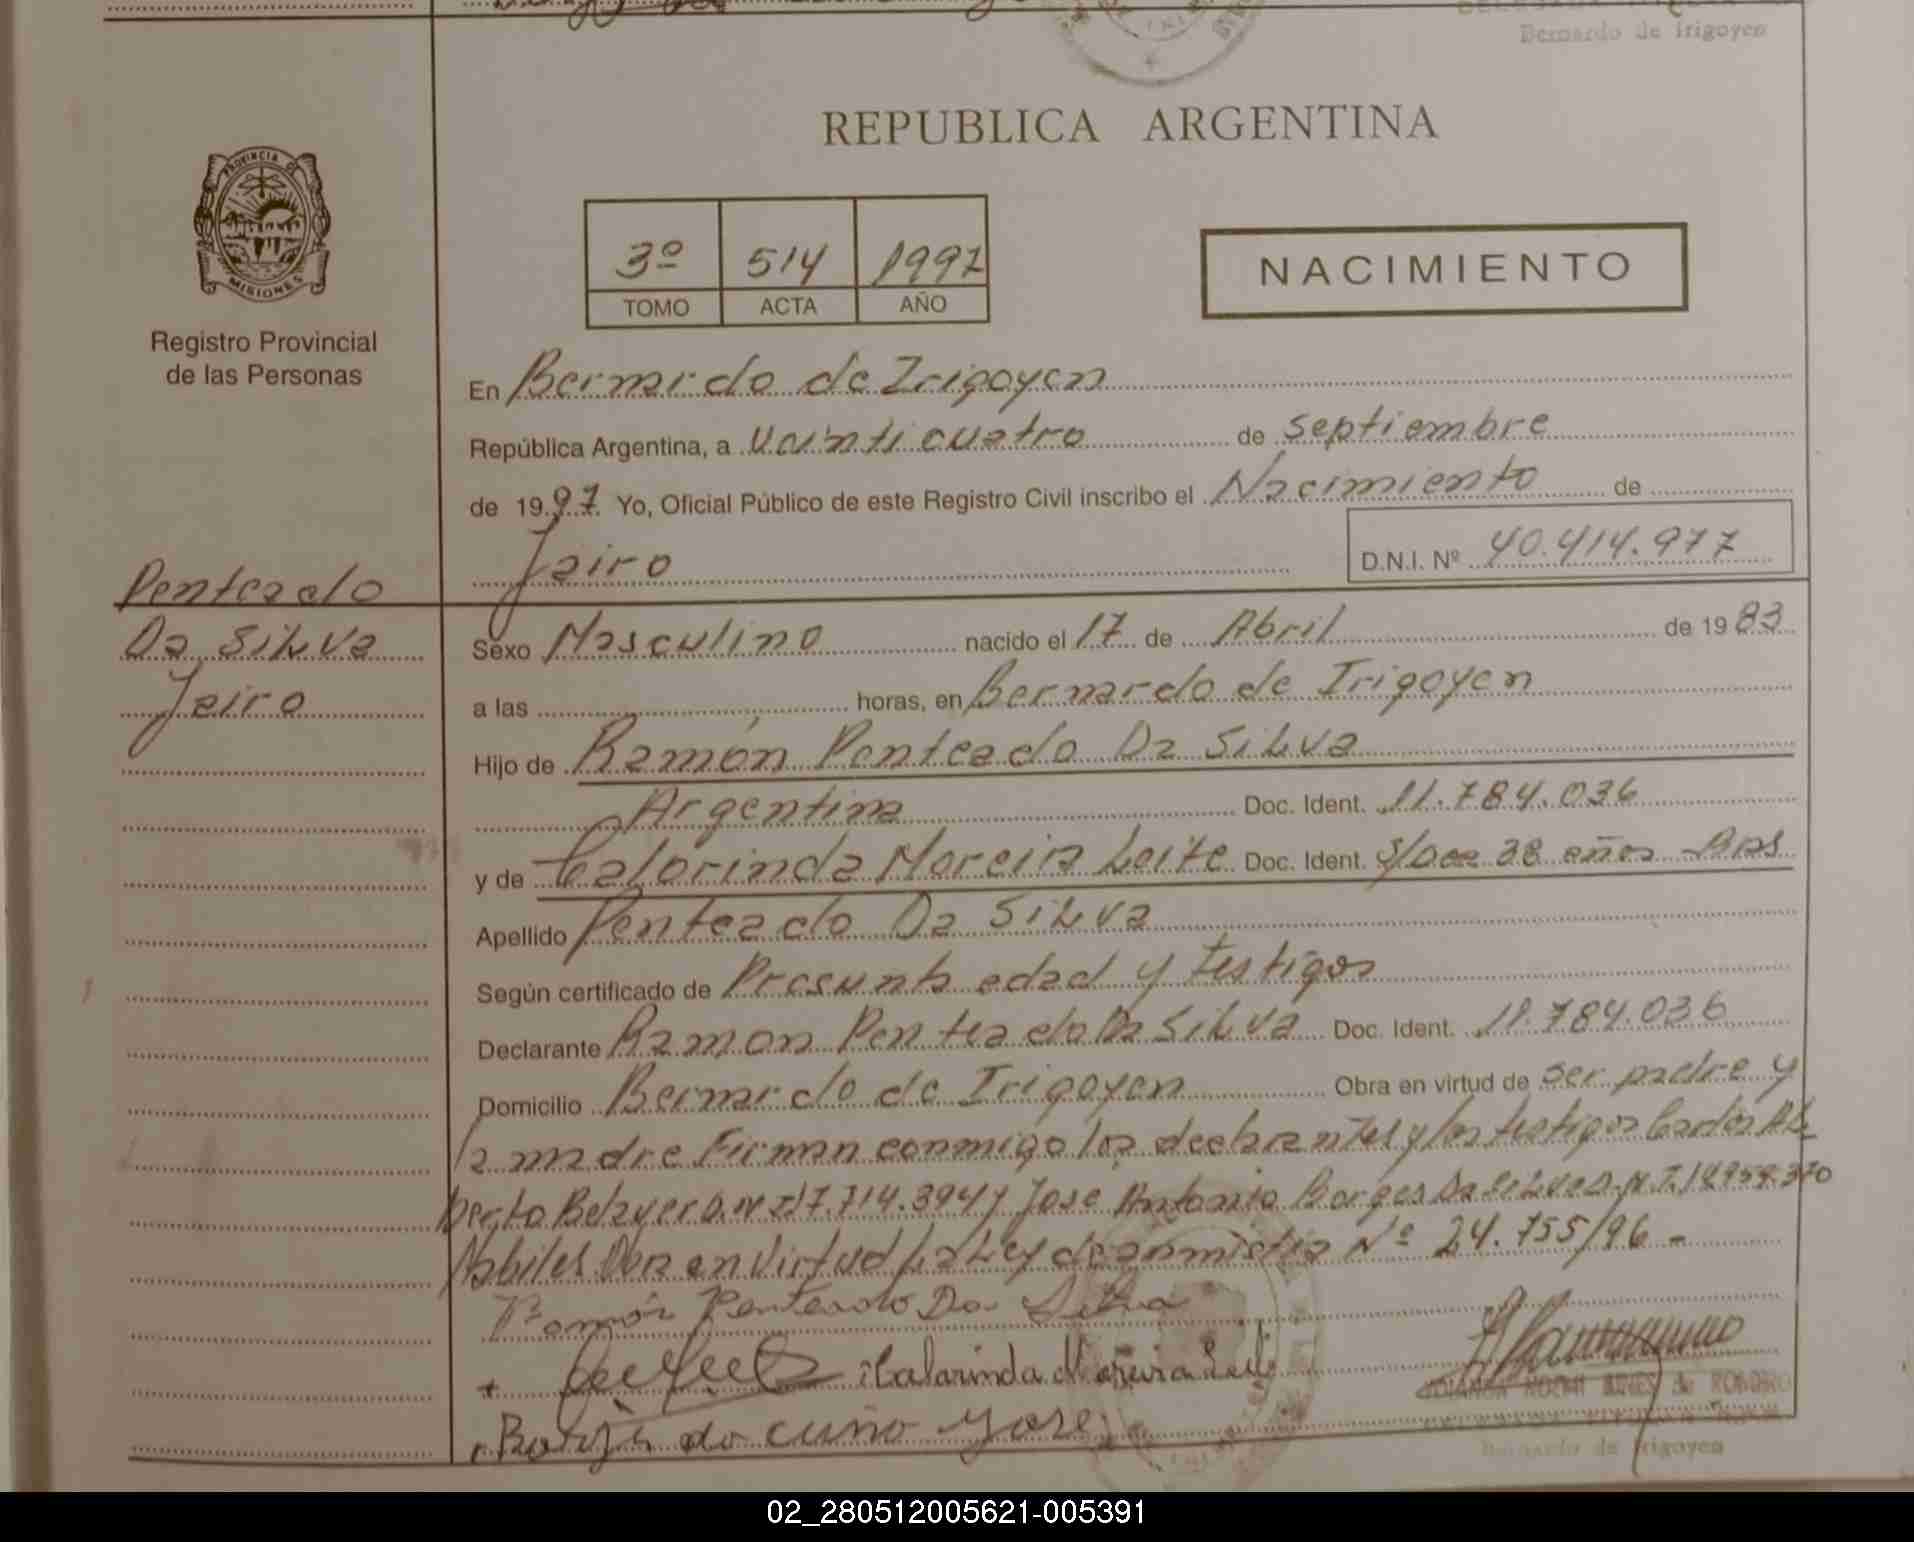 Bernardo de Irigoyen
REPUBLICA ARGENTINA
PROVINCIA DE
MISIONES
3º 514 1997
TOMO ACTA AÑO
NACIMIENTO
Registro Provincial
de las Personas
En Bernardo de Irigoyen
República Argentina, a Veinticuatro de septiembre
de 1997 Yo, Oficial Público de este Registro Civil inscribo el Nacimiento de
Jairo D.N.I. Nº 40.414.977
Penteado
Da Silva
Jairo
Sexo Masculino nacido el 17 de Abril de 1983
a las horas, en Bernardo de Irigoyen
Hijo de Ramón Penteado Da Silva
Argentina Doc. Ident. 11.784.036
y de Calorinda Moreira Leite Doc. Ident. S/Doc 38 años Bras
Apellido Penteado Da Silva
Según certificado de Presunta edad y testigos
Declarante Ramon Penteado Da Silva Doc. Ident. 11.784.036
Domicilio Bernardo de Irigoyen Obra en virtud de ser padre y
la madre Firman conmigo los declarantes y los testigos Carlos Al
berto 17.714.394 y Jose Antonio Borges Da Silva
Habiles en Virtud La Ley de amnistia Nº 24.755/96 -
Ramón Penteado Da Silva
Calarinda Moreira Leite
do cuño Jose
Bernardo de Irigoyen
02_280512005621-005391